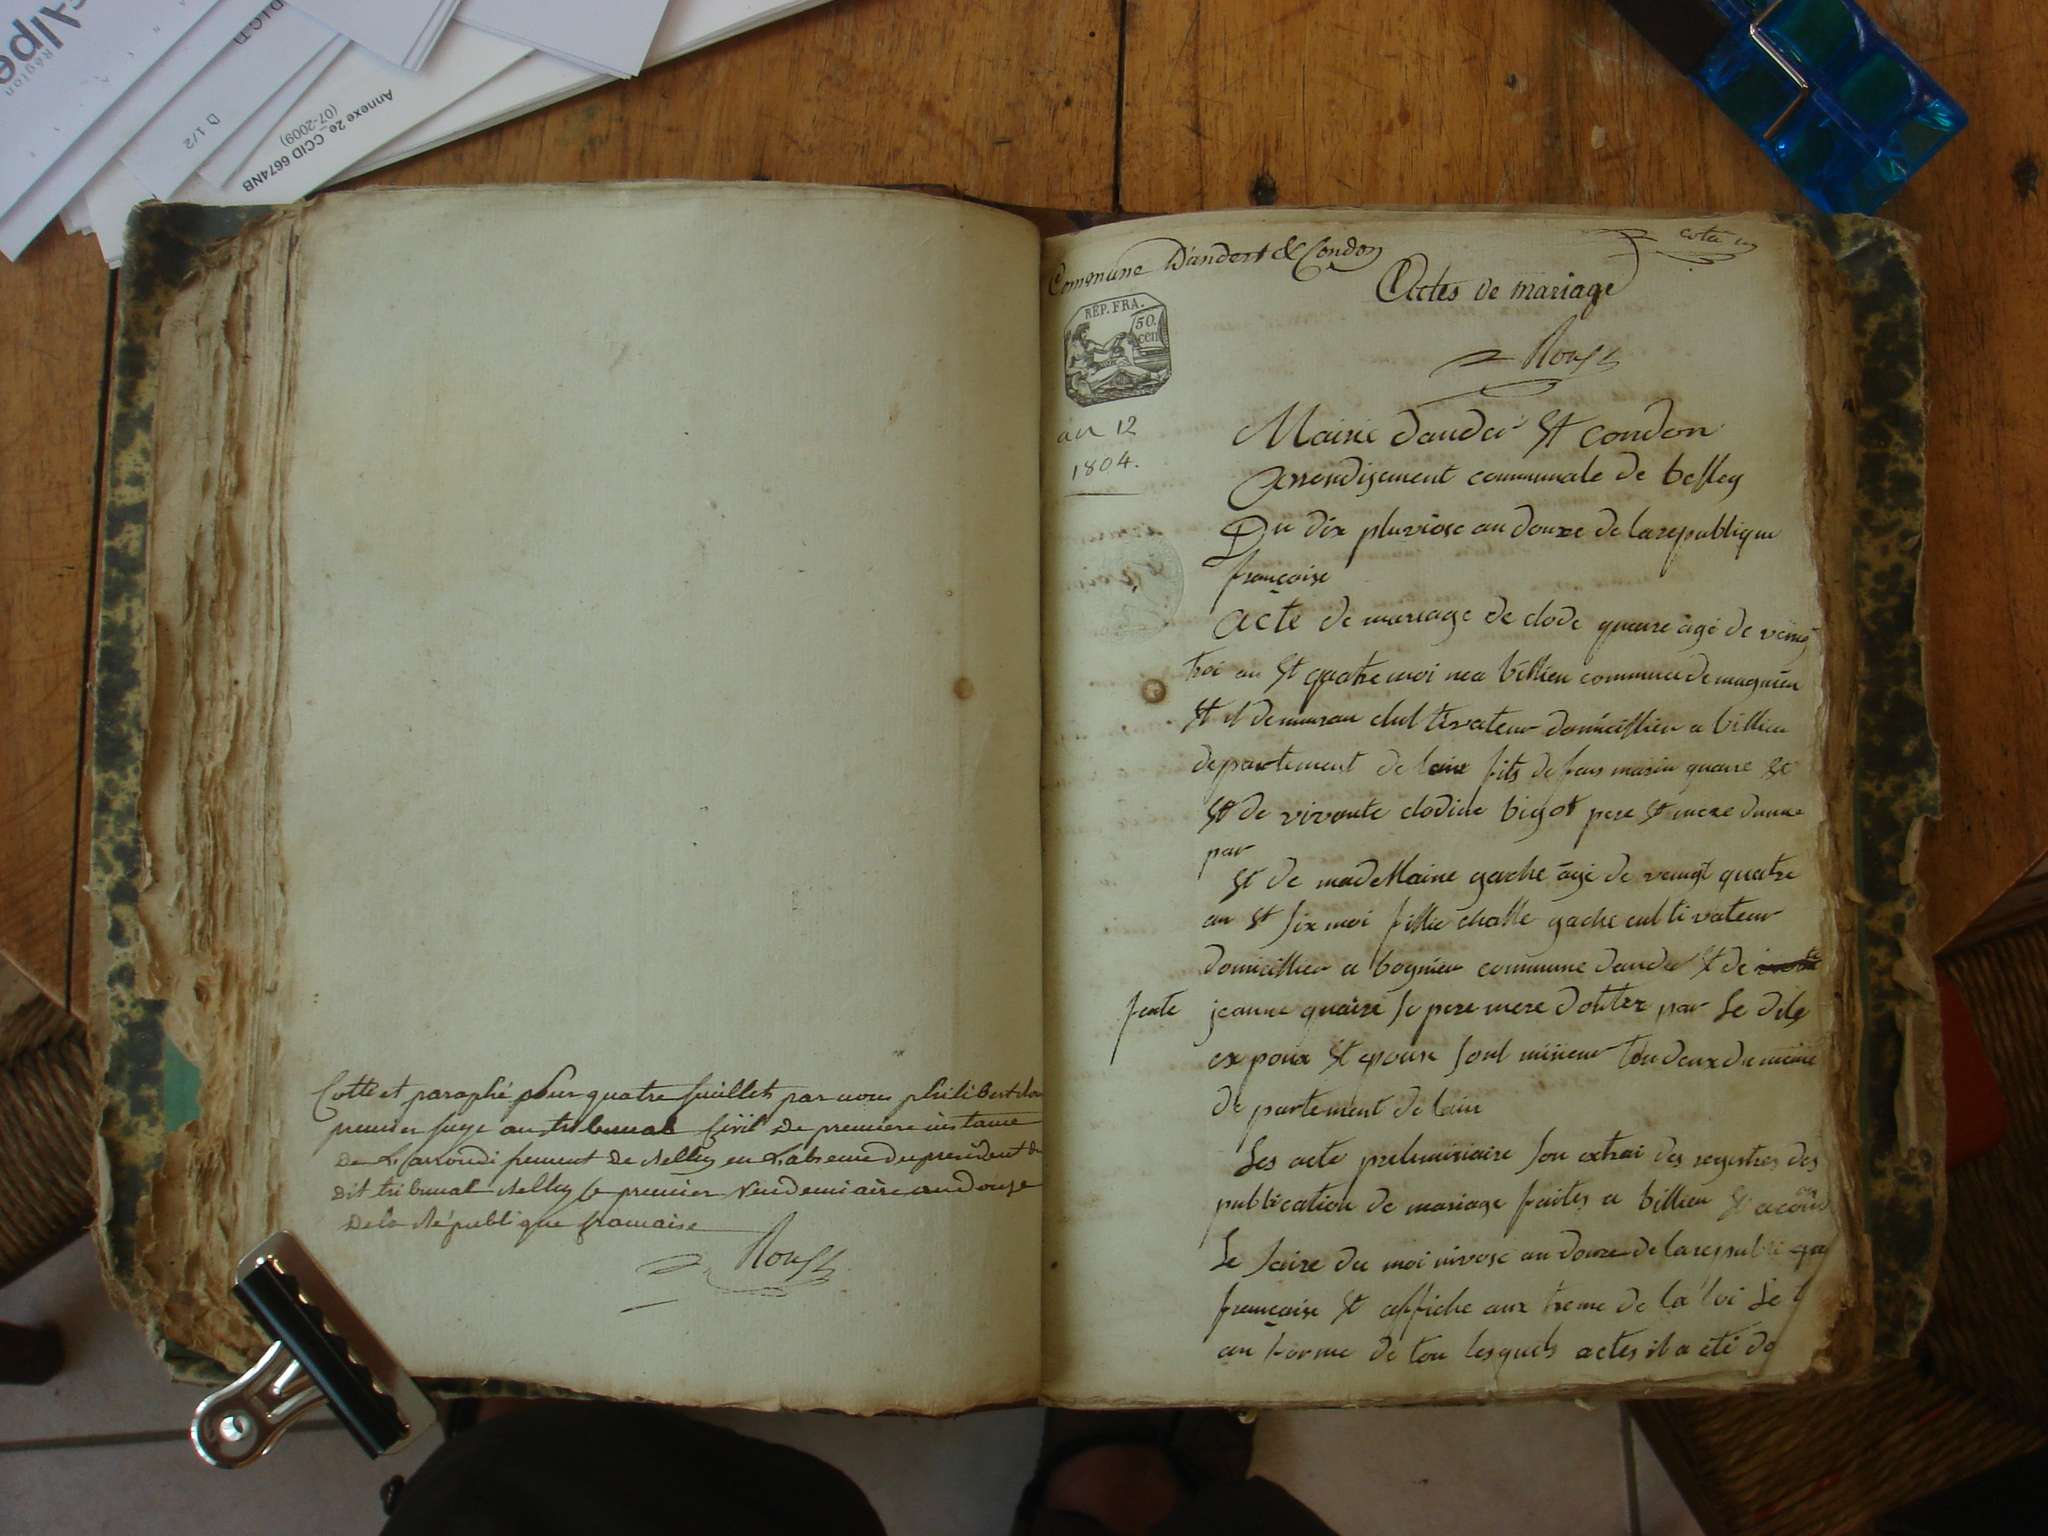 Alpe
Région
D.I.C.D
D 1/2
Annexe 2e_CCID 6674NB
(07-2009)
Cotté et paraphé pour quatre feuillets par nous philibert
premier juge au tribunal Civil de premiere instance
de L'arrondissement de Belley en L'absence du president du
dit tribunal Belley le premier Vendemiaire an Douze
De la République francaise
Commune D'andert & Condon
cotté
Actes de mariage
REP. FRA.
50.
cen
an 12
1804.
Mairie dander et condon
Arrondisement communale de belley
Du dix pluviose an douze de la republique
françoise
acte de mariage de clode quaire âgé de veingt
troi an et quatre moi ne a billieu commune de magnieu
et il demuran cultivateur domicillier a billieu
departement de lain fils de feus quaire et
et de vivante clodine bigot pere et mere
par
et de madellaine gache âgé de veingt quatre
an et six moi fillie challe gache cultivateur
domicillier a bognieu commune dander et de
feute jeanne quaire se pere mere par Le dis
ex poux et epouse sont tou deux du même
de partement de lain
Les acte preliminiaire son extrai des registres des
publication de mariage faites a billieu et a
Le seize du moi nivose an douze de la republique
françoise et affiche aux treme de la loi Le
an forme de tou lesquels actes il a été do